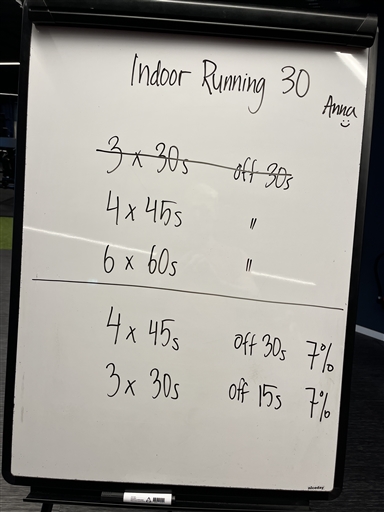 Indoor Running 30
Anna
3 x 30s off 30s
4 x 45s "
6 x 60s "
4 x 45s off 30s 7%
3 x 30s off 15s 7%